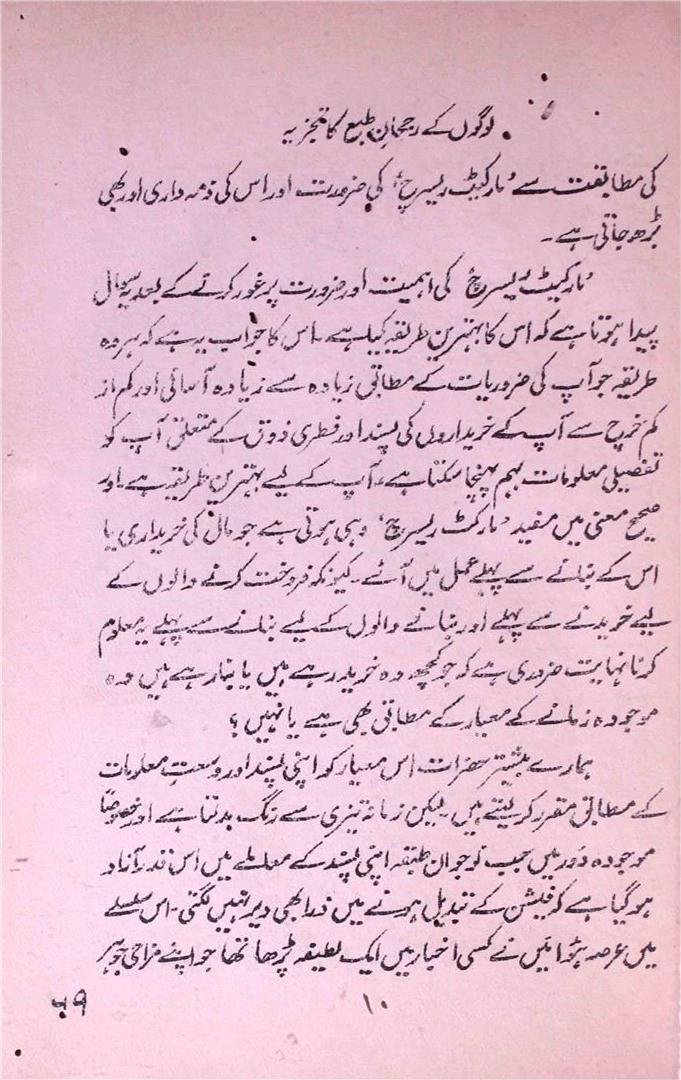 لوگوں کے رجحانِ طبع کا تجزیہ
کی مطابقت سے ’مارکیٹ ریسرچ‘ کی ضرورت اور اس کی ذمہ داری اور بھی
بڑھ جاتی ہے۔
’مارکیٹ ریسرچ‘ کی اہمیت اور ضرورت پر غور کرنے کے بعد یہ سوال
پیدا ہوتا ہے کہ اس کا بہترین طریقہ کیا ہے۔ اس کا جواب یہ ہے کہ ہر وہ
طریقہ جو آپ کی ضروریات کے مطابق زیادہ سے زیادہ آسانی اور کم از
کم خرچ سے آپ کے خریداروں کی پسند اور فطری ذوق کے متعلق آپ کو
تفصیلی معلومات بہم پہنچا سکتا ہے، آپ کے لیے بہترین طریقہ ہے۔ اور
صحیح معنی میں مفید ’مارکٹ ریسرچ‘ وہی ہوتی ہے جو مال کی خریداری یا
اس کے بنانے سے پہلے عمل میں آئے۔ کیونکہ فروخت کرنے والوں کے
لیے خریدنے سے پہلے اور بنانے والوں کے لیے بنانے سے پہلے یہ معلوم
کرنا نہایت ضروری ہے کہ جو کچھ وہ خرید رہے ہیں یا بنا رہے ہیں وہ
موجودہ زمانے کے معیار کے مطابق بھی ہے یا نہیں؟
ہمارے بیشتر حضرات اس معیار کو اپنی پسند اور وسعتِ معلومات
کے مطابق مقرر کر لیتے ہیں۔ لیکن زمانہ تیزی سے رنگ بدلتا ہے اور خصوصاً
موجودہ دَور میں جب نوجوان طبقہ اپنی پسند کے معاملے میں اس قدر آزاد
ہو گیا ہے کہ فیشن کے تبدیل ہونے میں ذرا بھی دیر نہیں لگتی۔ اس سلسلے
میں عرصہ ہؤا مَیں نے کسی اخبار میں ایک لطیفہ پڑھا تھا جو اپنے مزاحی جوہر
۱۰
۵۹